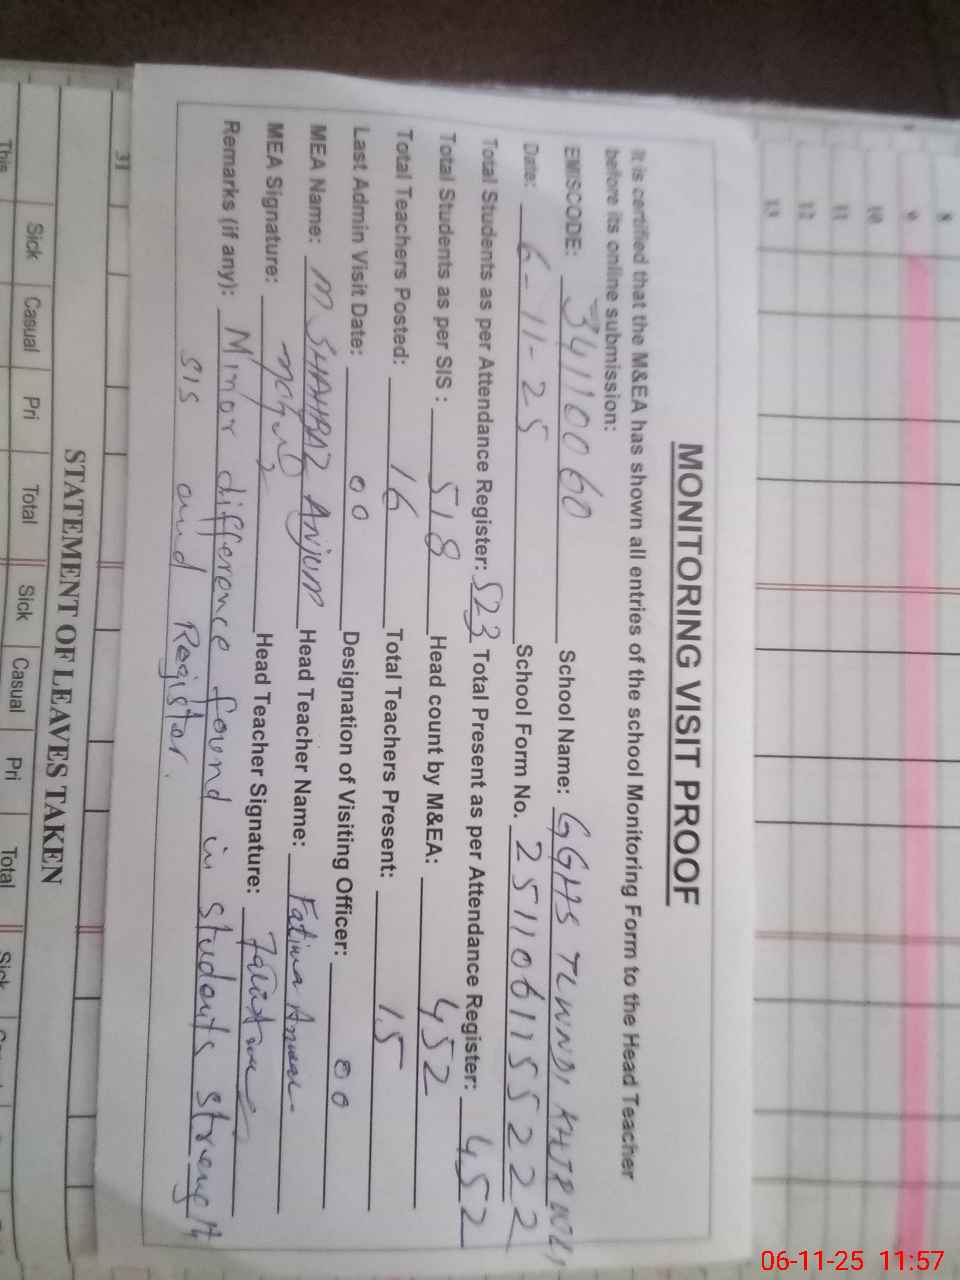 MONITORING VISIT PROOF
It is certified that the M&EA has shown all entries of the school Monitoring Form to the Head Teacher
before its online submission:
EMISCODE: 34110060 School Name: GGHS TLWNDI
Date: 6-11-25 School Form No. 25110611552222
Total Students as per Attendance Register: 523 Total Present as per Attendance Register: 452
Total Students as per SIS : 518 Head count by M&EA: 452
Total Teachers Posted: 16 Total Teachers Present: 15
Last Admin Visit Date: 00 Designation of Visiting Officer: 00
MEA Name: M SHAHBAZ Anjum Head Teacher Name: Fatima
MEA Signature: Head Teacher Signature:
Remarks (if any): Minor difference found in students strength
SIS and Register.
8
9
10
11
12
13
31
STATEMENT OF LEAVES TAKEN
Sick Casual Pri Total Sick Casual Pri Total Sick
This
06-11-25 11:57